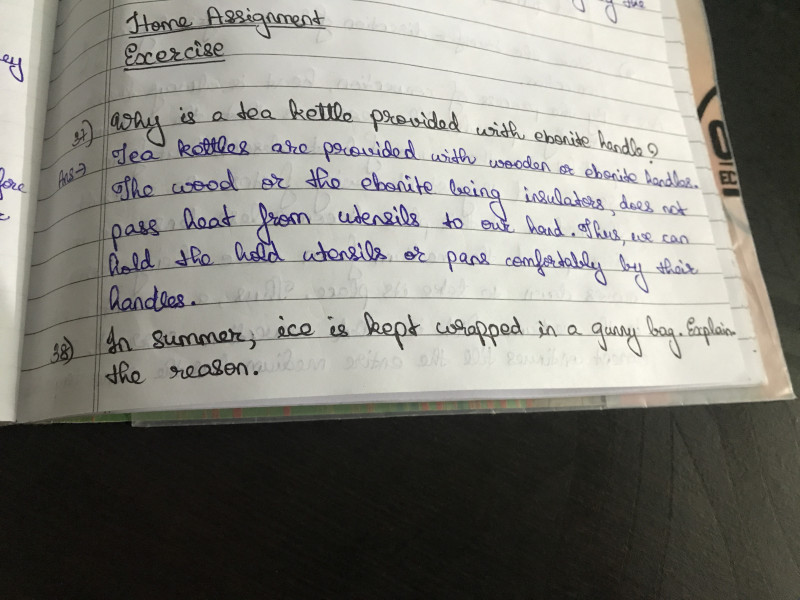 Home Assignment
Exercise
37) Why is a tea kettle provided with ebonite handle?
Ans→ Tea kettles are provided with wooden or ebonite handles.
The wood or the ebonite being insulators, does not
pass heat from utensils to our hand. Thus, we can
hold the hold utensils or pans comfortably by their
handles.
38) In summer, ice is kept wrapped in a gunny bag. Explain
the reason.